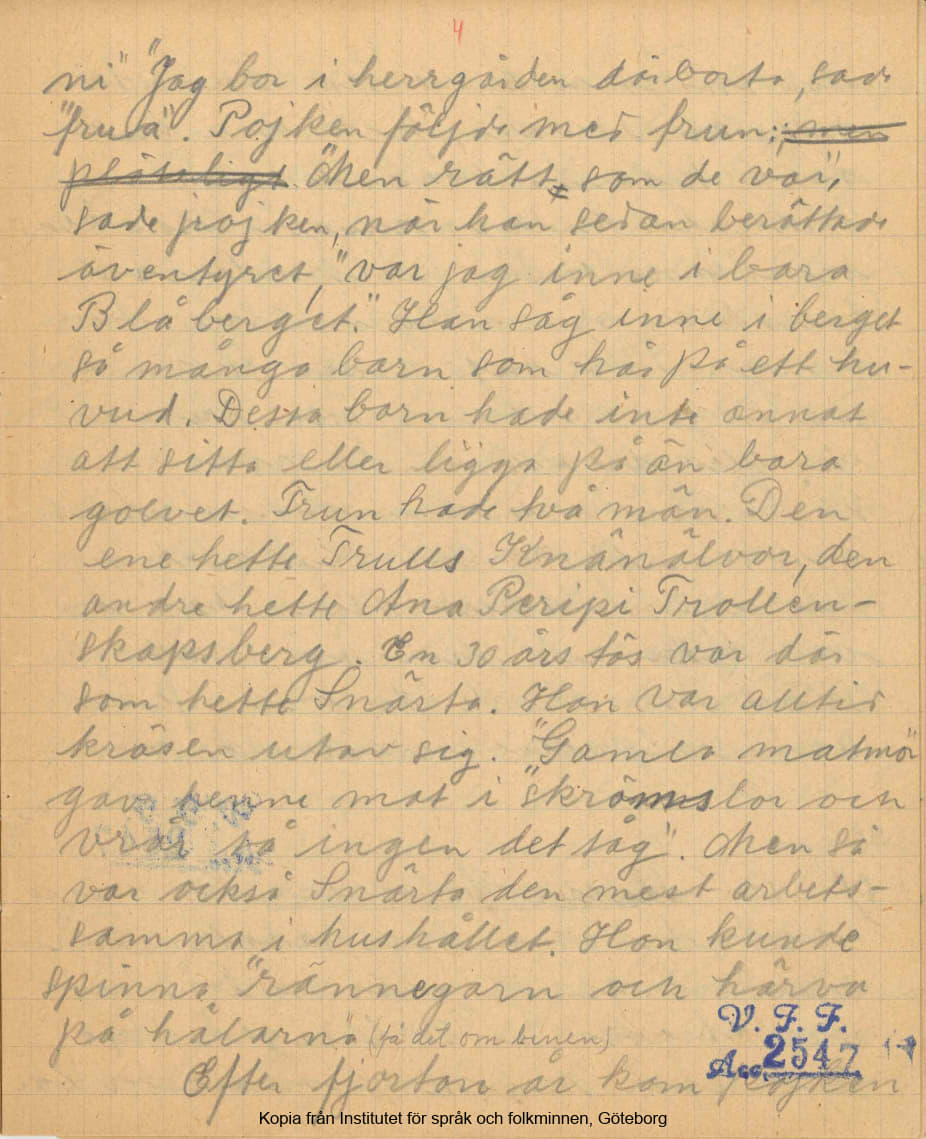 4
ni" "Jag bor i herrgården därborta, sade
"frua". Pojken följde med frun; men
plötsligt "Men rätt som de var",
sade pojken, när han sedan berättade
äventyret, "var jag inne i bara
Blåberget." Han såg inne i berget
så många barn som hår på ett hu-
vud. Dessa barn hade inte annat
att sitta eller ligga på än bara
golvet. Frun hade två män. Den
ene hette Trulls Knänälvor, den
andre hette Ana Peripi Trollen-
skapsberg. En 30 års tös var där
som hette Snärta. Hon var alltid
kräsen utav sig. "Gamla matmor
gav henne mat i "skrömslor och
vrår så ingen det såg". Men så
var också Snärta den mest arbets-
samma i hushållet. Hon kunde
spinna "rännegarn och härva
på hälarna (få det om benen)
Efter fjorton år kom pojken
V. F. F.
Acc. 2547 1-4
Kopia från Institutet för språk och folkminnen, Göteborg